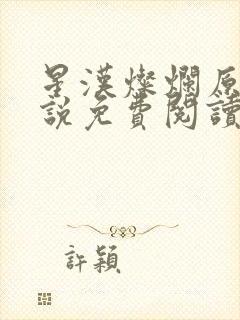 星漢燦爛原
說免費閱讀
許穎